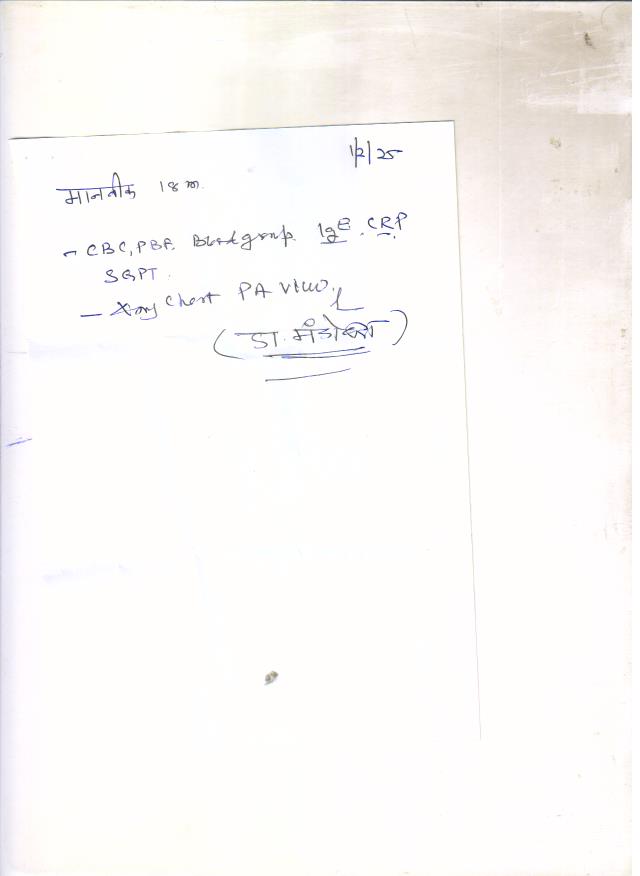 1/2/25
मानवीक 18 m.
- CBC, PBF. Blood group. IgE. CRP.
SGPT.
- Xray Chest PA view.
(डा.